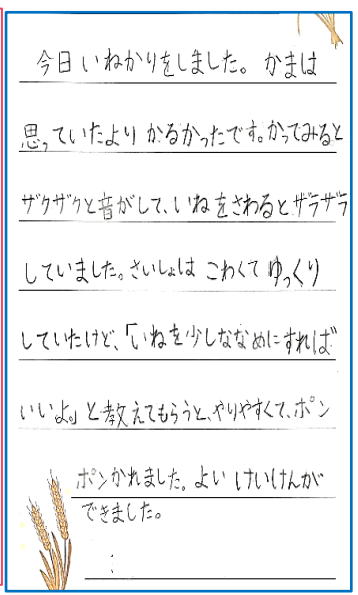 今日いねかりをしました。かまは
思っていたよりかるかったです。かってみると
ザクザクと音がして、いねをさわるとザラザラ
していました。さいしょはこわくてゆっくり
していたけど、「いねを少しななめにすれば
いいよ。」と教えてもらうと、やりやすくて、ポン
ポンかれました。よいけいけんが
できました。